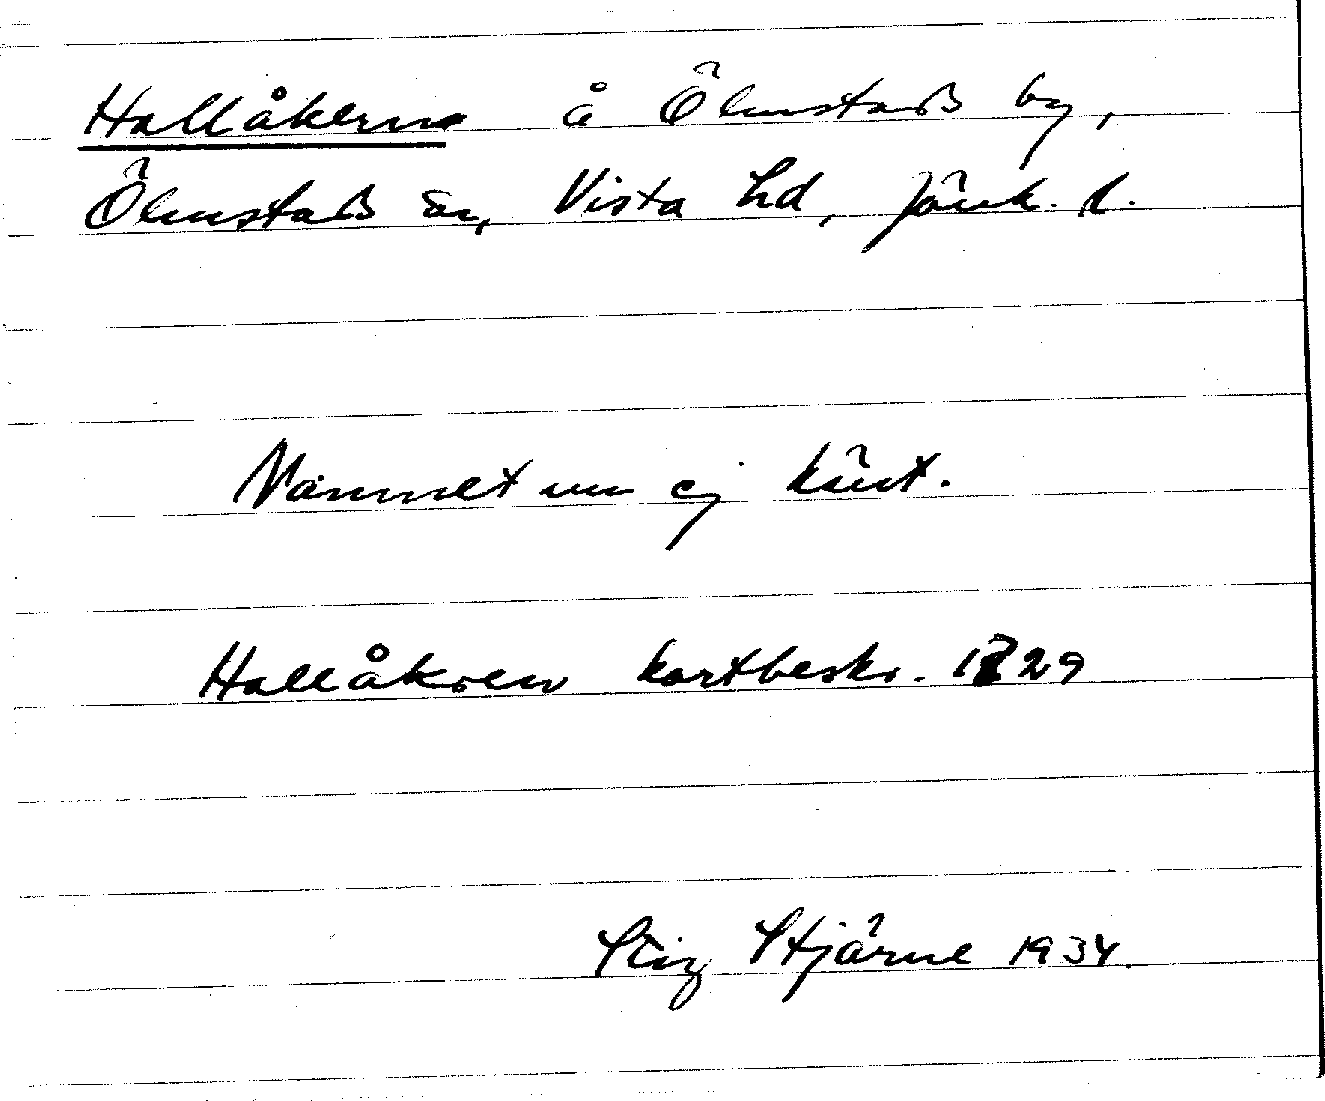 Hallåkerna å Ölmstads by,
Ölmstads sn, Vista hd, Jönk. l.
Namnet nu ej känt.
Hallåkren kartbeskr. 1729
Stig Stjärne 1934.